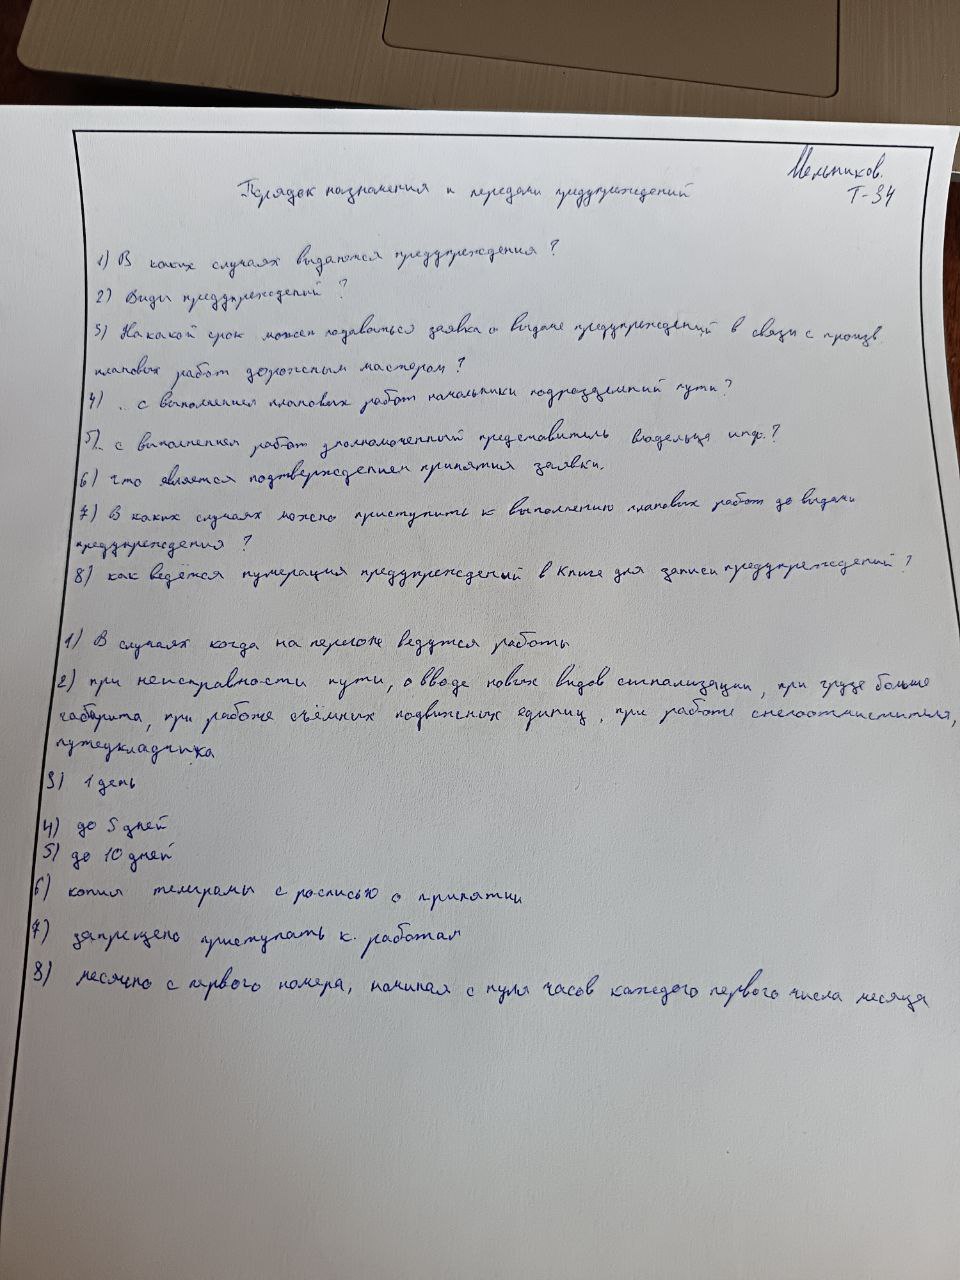 Мельников.
Т-34
Порядок назначения и передачи предупреждений
1) В каких случаях выдаются предупреждения?
2) Виды предупреждений?
3) На какой срок может подаваться заявка о выдаче предупреждений в связи с произв.
плановых работ дорожным мастером?
4) .. с выполнением плановых работ начальники подразделений пути?
5).. с выполнением работ уполномоченный представитель владельца инф.?
6) что является подтверждением принятия заявки.
7) В каких случаях можно приступить к выполнению плановых работ до выдачи
предупреждения?
8) как ведётся нумерация предупреждений в книге для записи предупреждений?
1) В случаях когда на перегоне ведутся работы
2) при неисправности пути, о вводе новых видов сигнализации, при грузе больше
габарита, при работе съёмных подвижных единиц, при работе снегоочистителя,
путеукладчика
3) 1 день
4) до 5 дней
5) до 10 дней
6) копия телеграмы с росписью о принятии
7) запрещено приступать к работам
8) месячно с первого номера, начиная с нуля часов каждого первого числа месяца